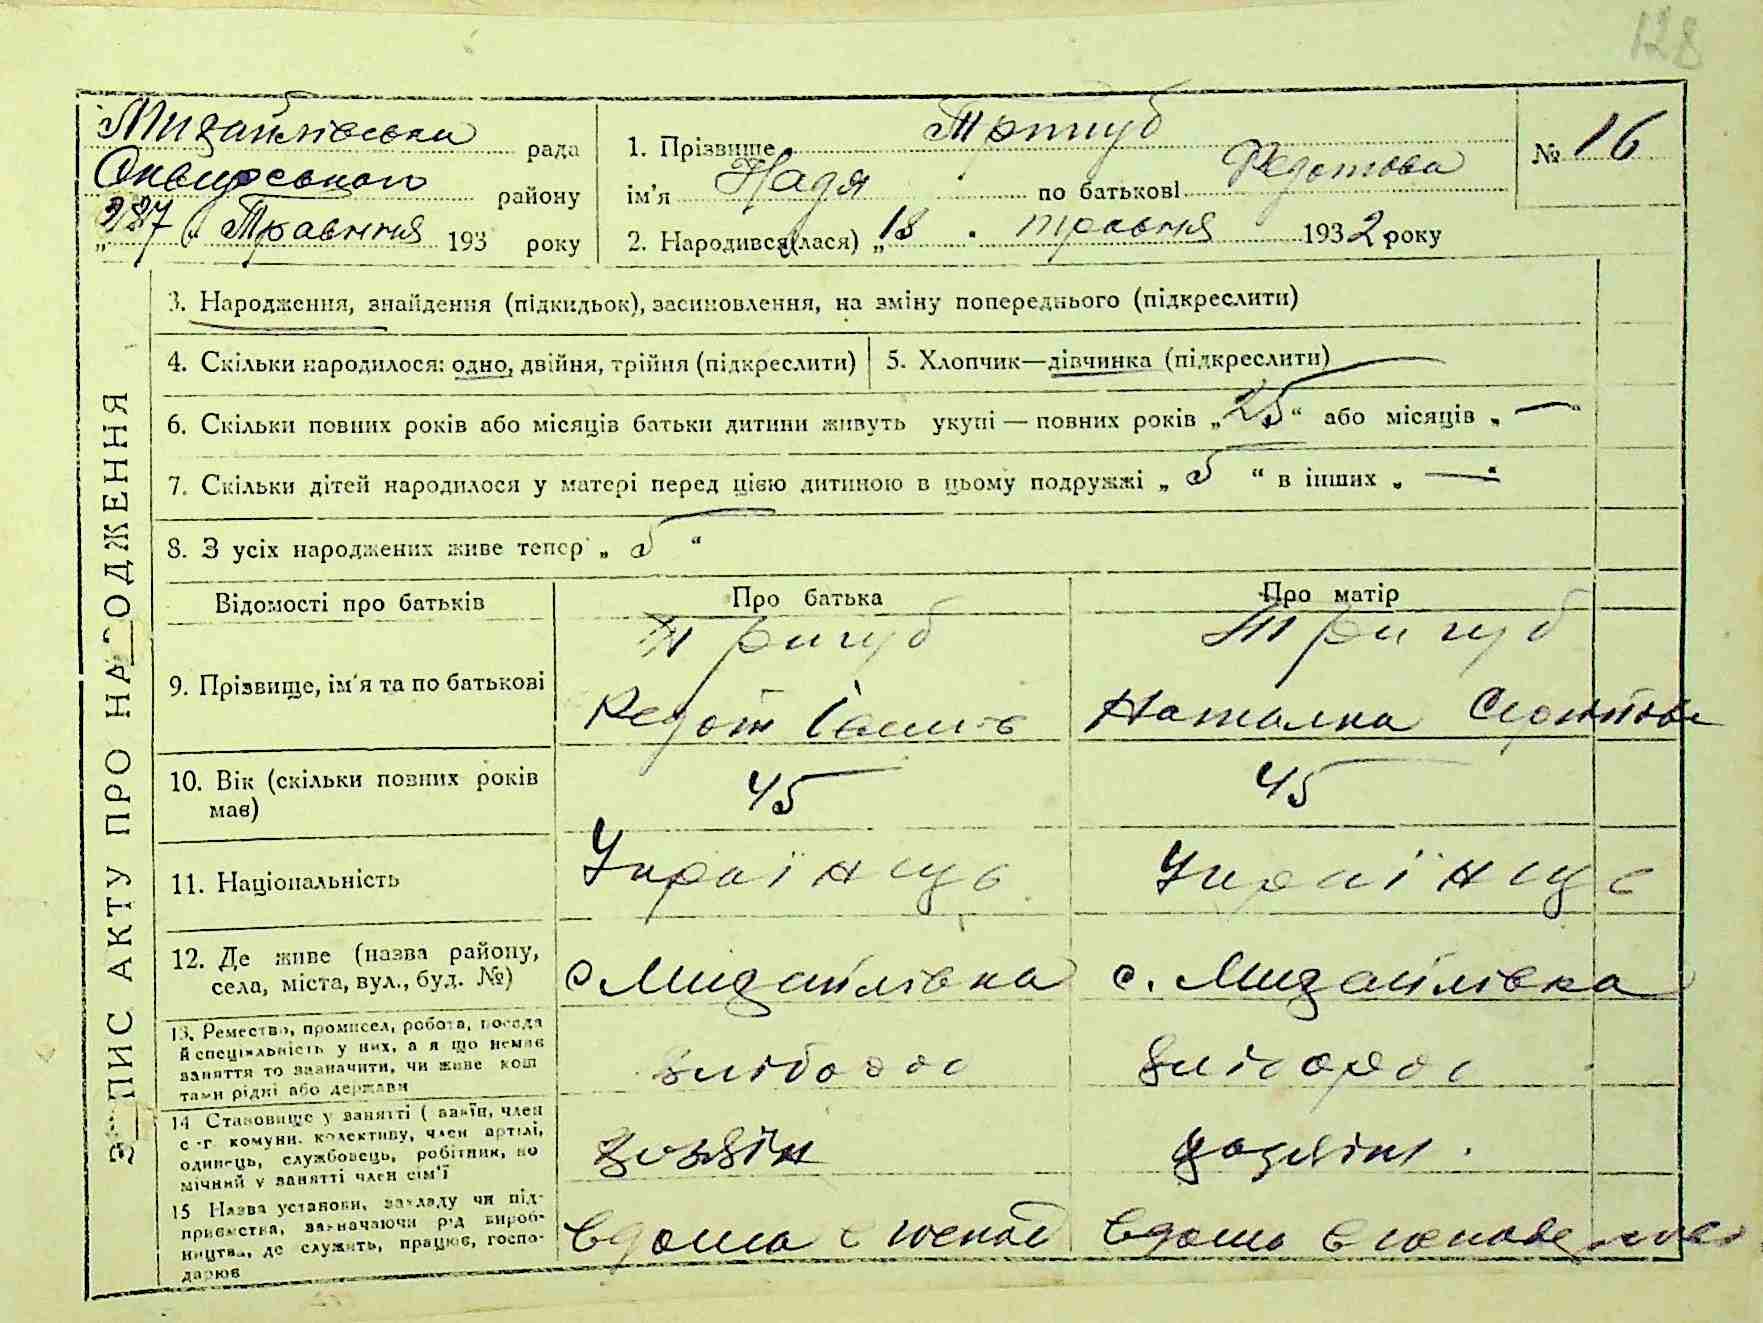 128
Михайлівська рада
Сквирського району
„287 Травня 193 року
1. Прізвище Тригуб
ім'я Надя по батькові Федотова
2. Народився(лася) „18 травня 1932 року
№ 16
ЗАПИС АКТУ ПРО НАРОДЖЕННЯ
3. Народження, знайдення (підкидьок), засиновлення, на зміну попереднього (підкреслити)
4. Скільки народилося: одно, двійня, трійня (підкреслити)
5. Хлопчик—дівчинка (підкреслити)
6. Скільки повних років або місяців батьки дитини живуть укупі — повних років „25“ або місяців „—“
7. Скільки дітей народилося у матері перед цією дитиною в цьому подружжі „5“ в інших „—“
8. З усіх народжених живе тепер „5“
Відомості про батьків
Про батька
Про матір
9. Прізвище, ім'я та по батькові
Тригуб
Федот
Тригуб
Наталка
10. Вік (скільки повних років має)
45
45
11. Національність
Українці
Українці
12. Де живе (назва району, села, міста, вул., буд. №)
с Михайлівка
с. Михайлівка
13. Ремество, промисел, робота, посада й спеціяльність у них, а якщо немає заняття то зазначити, чи живе коштами рідні або держави
хлібороб
хлібороб
14 Становище у занятті (хазяїн, член с-г. комуни, колективу, член артілі, одинець, службовець, робітник, помічний у занятті член сім'ї
хозяїн
15 Назва установи, закладу чи підприємства, зазначаючи рід виробництва, де служить, працює, господарює
вдома в господ
вдома в господ